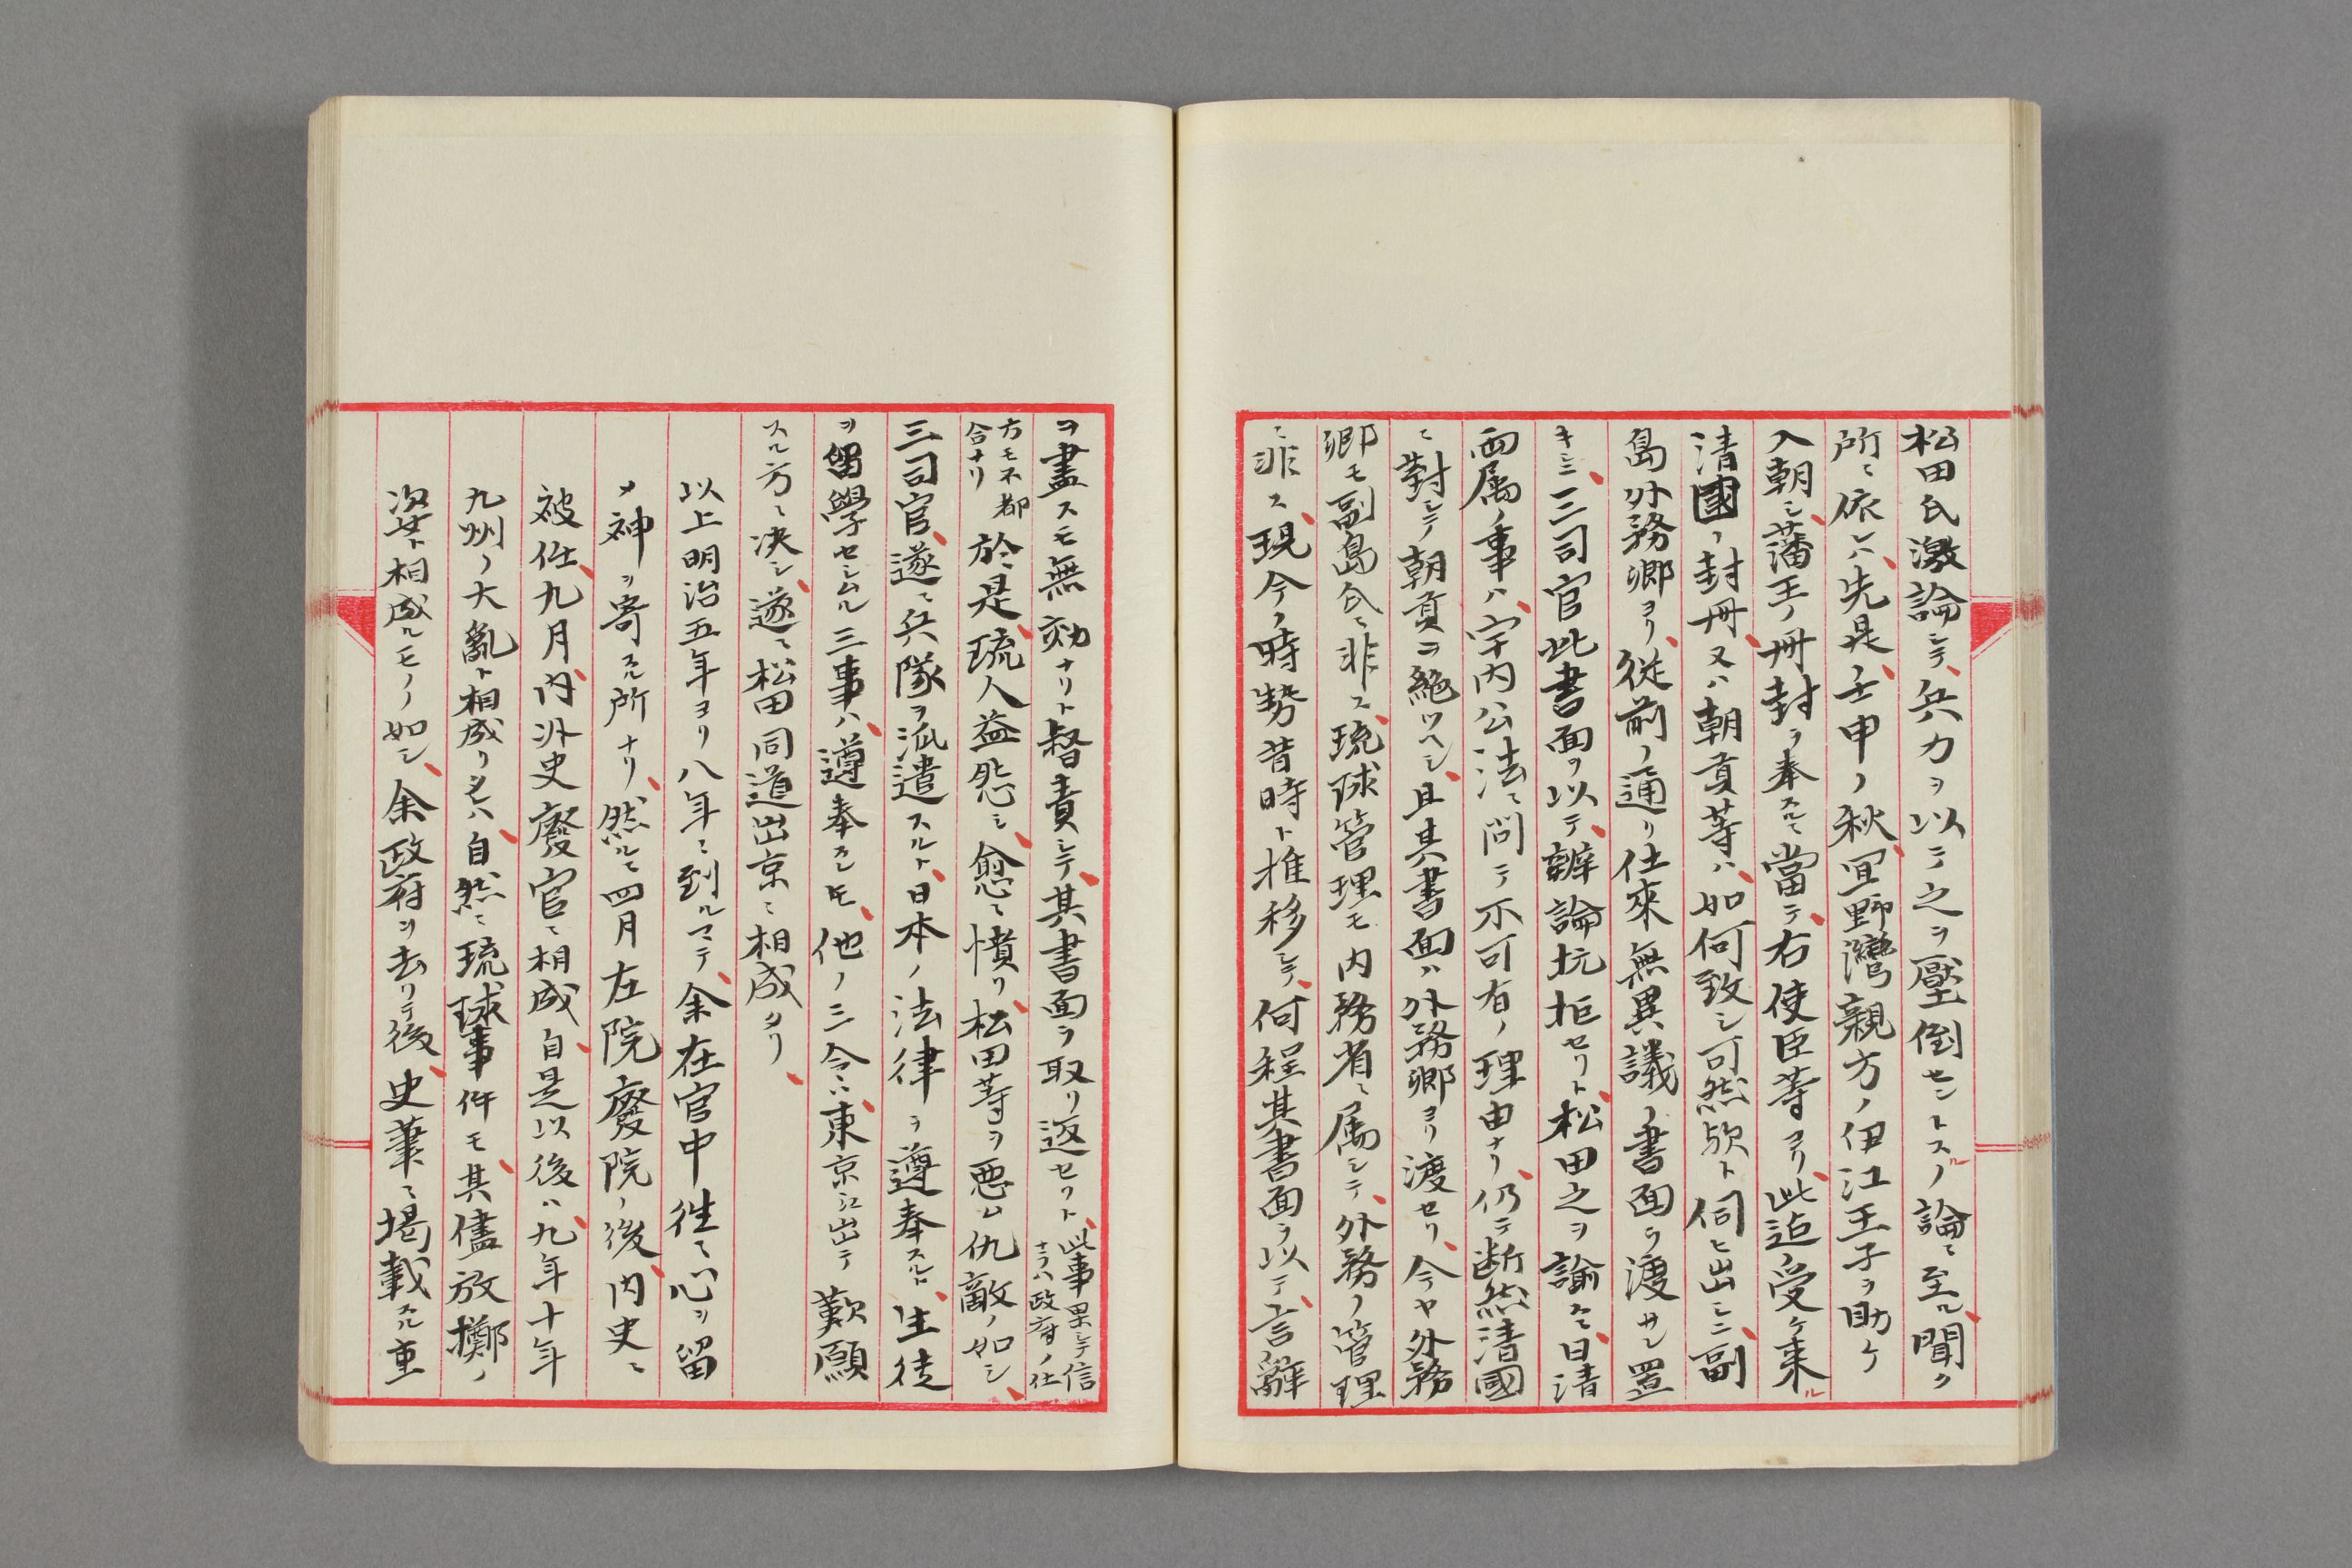 松田氏激論シテ、兵力ヲ以テ之ヲ壓倒セントスルノ論ニ至ル、聞ク
所ニ依レハ、先是、壬申ノ秋、宜野灣親方ノ伊江王子ヲ助ケ
入朝シ、藩王ノ冊封ヲ奉スルニ當テ、右使臣等ヨリ、此迠受ケ来ル
清國ノ封冊、又ハ朝貢等ハ、如何致シ可然欤ト伺ヒ出シニ、副
島外務卿ヨリ、従前ノ通リ仕來無異議ノ書面ヲ渡サレ置
キシニ、三司官此書面ヲ以テ、辨論抗拒セリト、松田之ヲ諭シテ曰、清
両属ノ事ハ、宇内公法ニ問テ不可有ノ理由ナリ、仍テ断然清國
ニ對シテ朝貢ヲ絶ツヘシ、且其書面ハ外務卿ヨリ渡セリ、今ヤ外務
卿モ副島氏ニ非ス、琉球管理モ内務省ニ属シテ、外務ノ管理
ニ非ス、現今ノ時勢昔時ト推移シテ、何程其書面ヲ以テ、言辭
ヲ盡スモ無効ナリト督責シテ、其書面ヲ取リ返セリト、此事果シテ信ナラハ政府ノ仕
方モ不都合ナリ 於是、琉人益怨ミ、愈ニ憤リ、松田等ヲ悪ム仇敵ノ如シ、
三司官、遂ニ兵隊ヲ派遣スルト、日本ノ法律ヲ遵奉スルト、生徒
ヲ留學セシムル三事ハ、遵奉スレモ、他ノ三令ハ、東京江出テ歎願
スル方ニ决シ、遂ニ松田同道出京ニ相成タリ、
以上明治五年ヨリ八年ニ到ルマテ、余在官中徃ニ心ヲ留
メ神ヲ寄スル所ナリ、然ルニ四月左院廢院ノ後、内史ニ
被任、九月内外史廢官ニ相成、自是以後ハ、九年十年
九州ノ大亂ト相成リタレハ、自然ニ琉球事件モ、其儘放擲ノ
姿ト相成ルモノヽ如シ、余政府ヲ去リテ後、史筆ニ掲載スル重